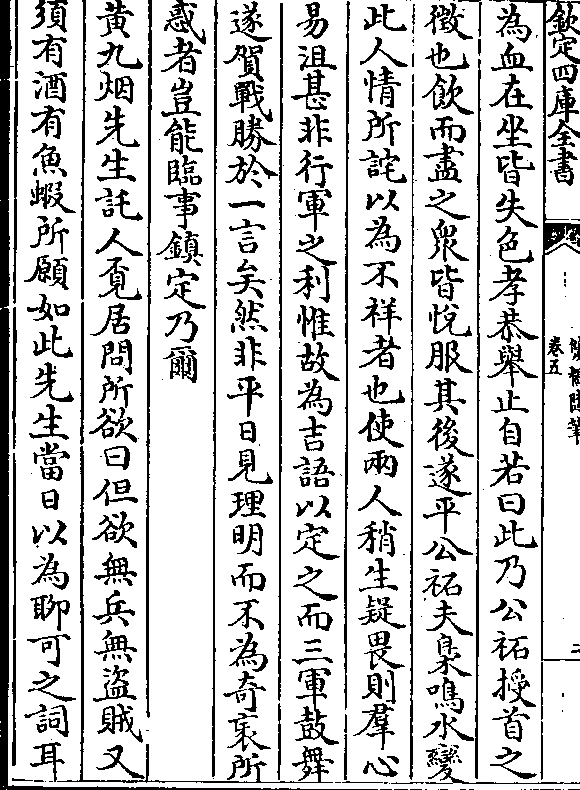 欽定四庫全書
卷五
為血在坐皆失色孝恭舉止自若曰此乃公祏授首之
徵也飲而盡之眾皆悅服其後遂平公祏夫梟鳴水變
此人情所詫以為不祥者也使兩人稍生疑畏則羣心
易沮甚非行軍之利惟故為吉語以定之而三軍鼓舞
遂賀戰勝於一言矣然非平日見理明而不為奇衺所
惑者豈能臨事鎮定乃爾
黃九烟先生託人覔居問所欲曰但欲無兵無盜賊又
須有酒有魚蝦所願如此先生當日以為聊可之詞耳